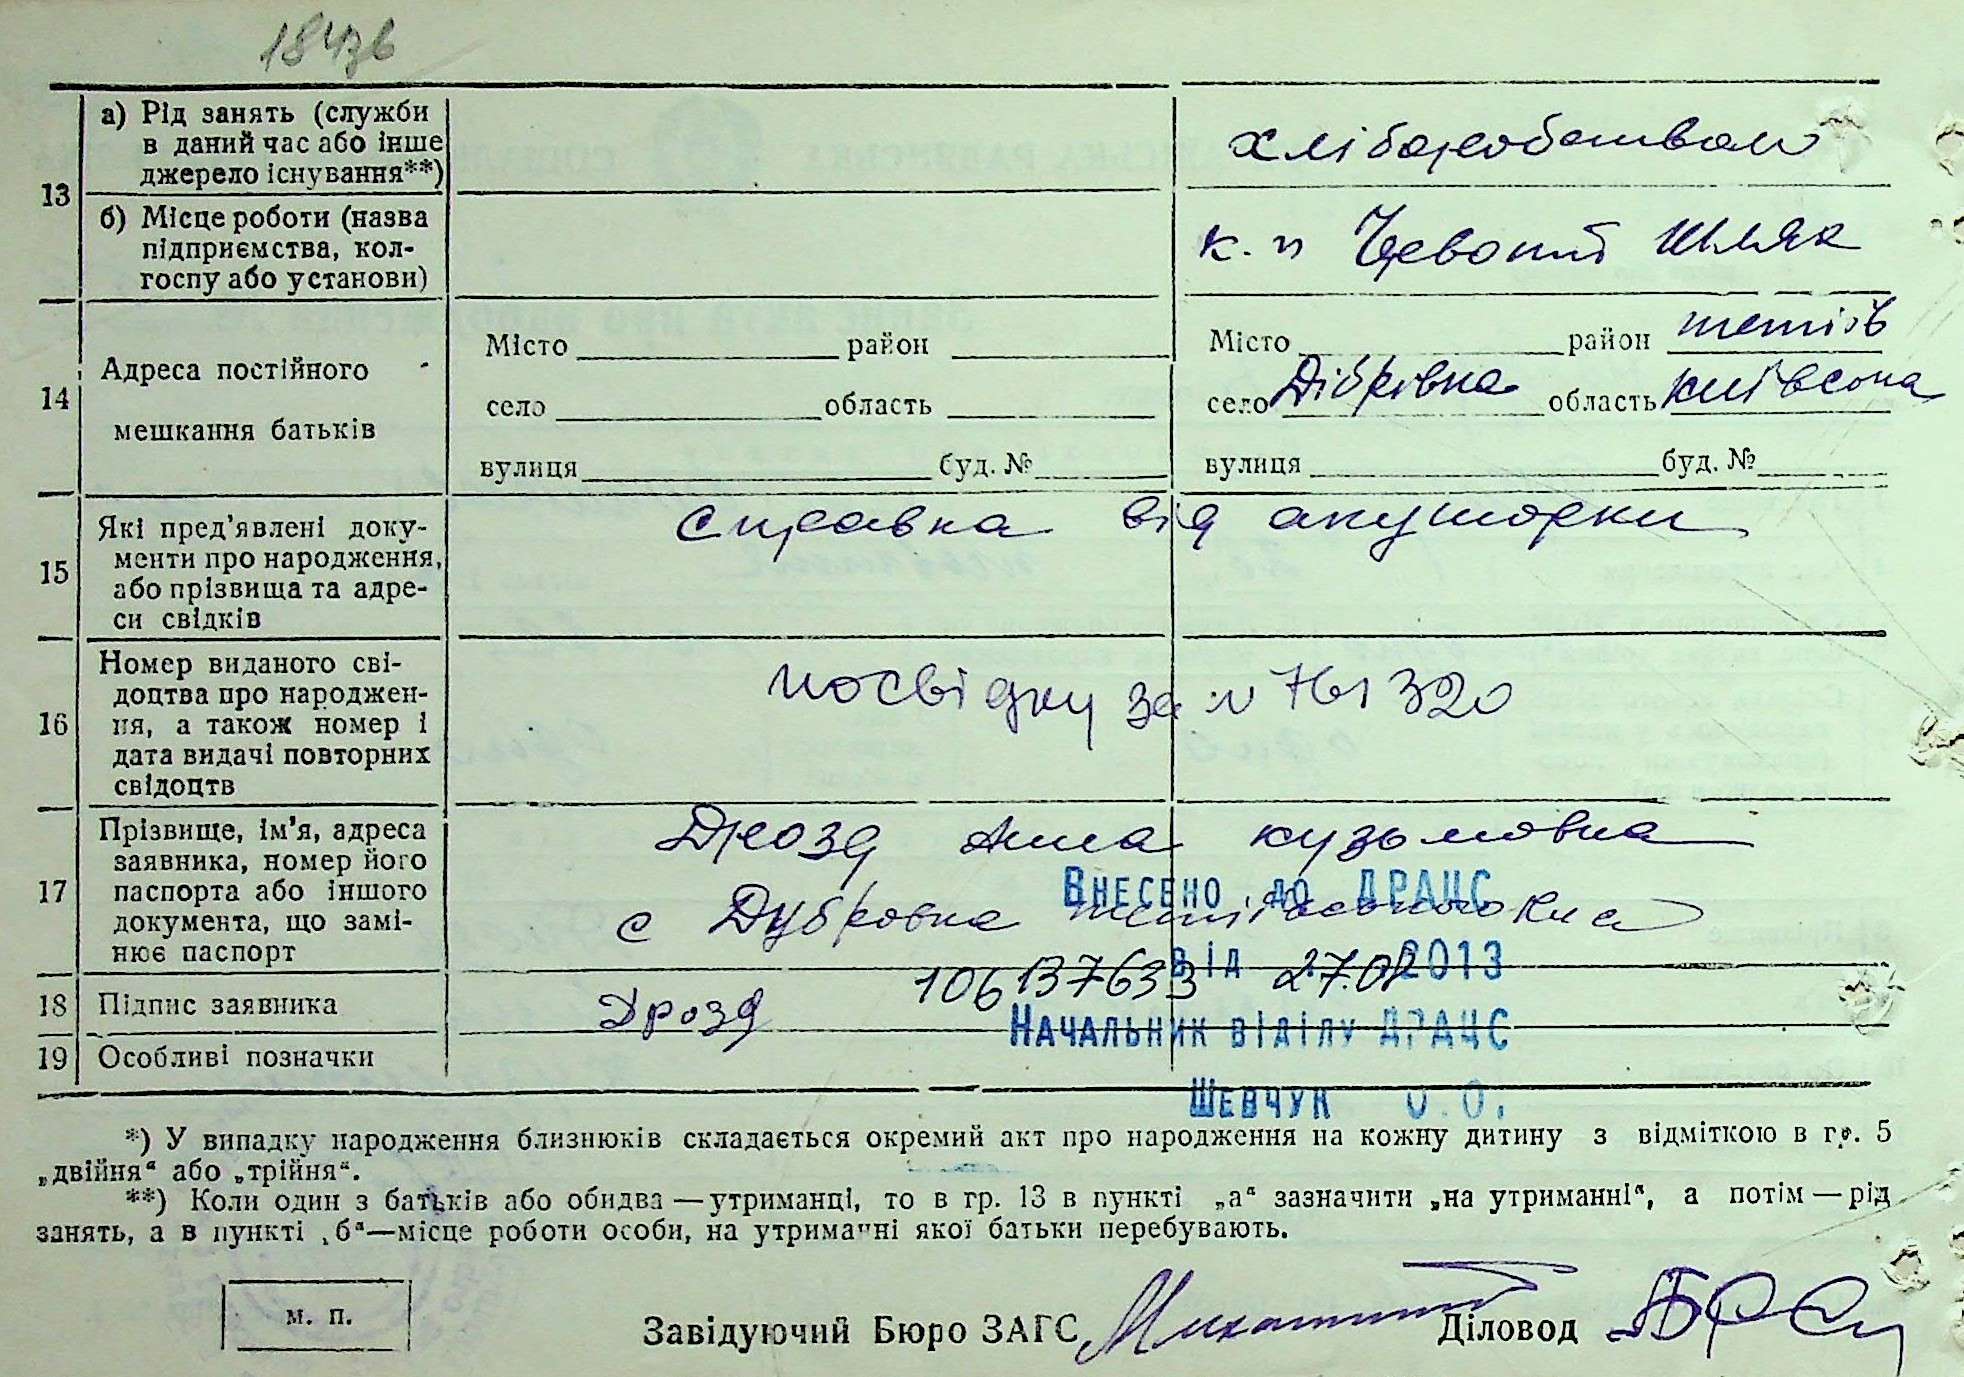 13
а) Рід занять (служби
в даний час або інше
джерело існування**)
хліборобством
б) Місце роботи (назва
підприємства, кол-
госпу або установи)
к. п Червоний шлях
14
Адреса постійного
мешкання батьків
Місто район
село область
вулиця буд. №
Місто район тетіїв
село Дібрівка область київська
вулиця буд. №
15
Які пред'явлені доку-
менти про народження,
або прізвища та адре-
си свідків
справка від акушорки
16
Номер виданого сві-
доцтва про народжен-
ня, а також номер і
дата видачі повторних
свідоцтв
посвідку за № 761320
17
Прізвище, ім'я, адреса
заявника, номер його
паспорта або іншого
документа, що замі-
нює паспорт
Дрозд Анна кузьмовна
Внесено до ДРАЦС
с Дубровка
від 27.07 2013
106137633
18 Підпис заявника
Дрозд
Начальник відділу ДРАЦС
19 Особливі позначки
Шевчук О.О.
*) У випадку народження близнюків складається окремий акт про народження на кожну дитину з відміткою в гр. 5
„двійня“ або „трійня“.
**) Коли один з батьків або обидва — утриманці, то в гр. 13 в пункті „а“ зазначити „на утриманні“, а потім — рід
занять, а в пункті „б“—місце роботи особи, на утриманні якої батьки перебувають.
м. п.
Завідуючий Бюро ЗАГС
Діловод